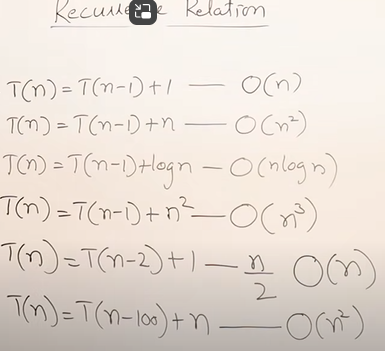 Relation
T(n) = T(n-1) + 1 — O(n)
T(n) = T(n-1) + n — O(n²)
T(n) = T(n-1) + log n — O(n log n)
T(n) = T(n-1) + n² — O(n³)
T(n) = T(n-2) + 1 — n/2 O(n)
T(n) = T(n-100) + n — O(n²)